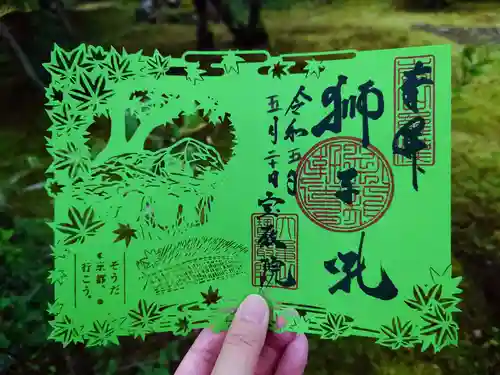 奉拝
獅子吼
令和五年
五月二十日 宝厳院
そうだ
京都、
行こう。